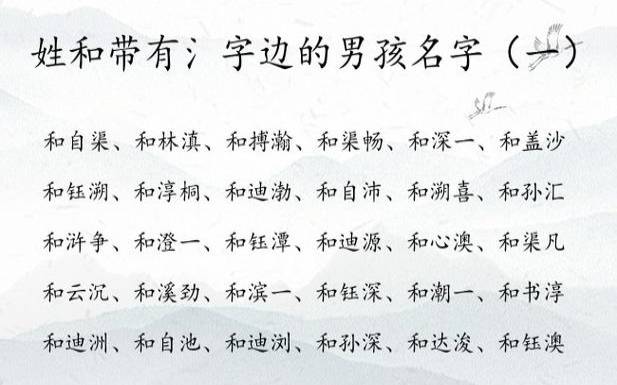 姓和带有氵字边的男孩名字（一）
和自渠、和林滇、和搏瀚、和渠畅、和深一、和盖沙
和钰溯、和淳桐、和迪渤、和自沛、和溯喜、和孙汇
和浒争、和澄一、和钰潭、和迪源、和心澳、和渠凡
和云沉、和溪劲、和滨一、和钰深、和潮一、和书淳
和迪洲、和自池、和迪浏、和孙深、和达浚、和钰澳